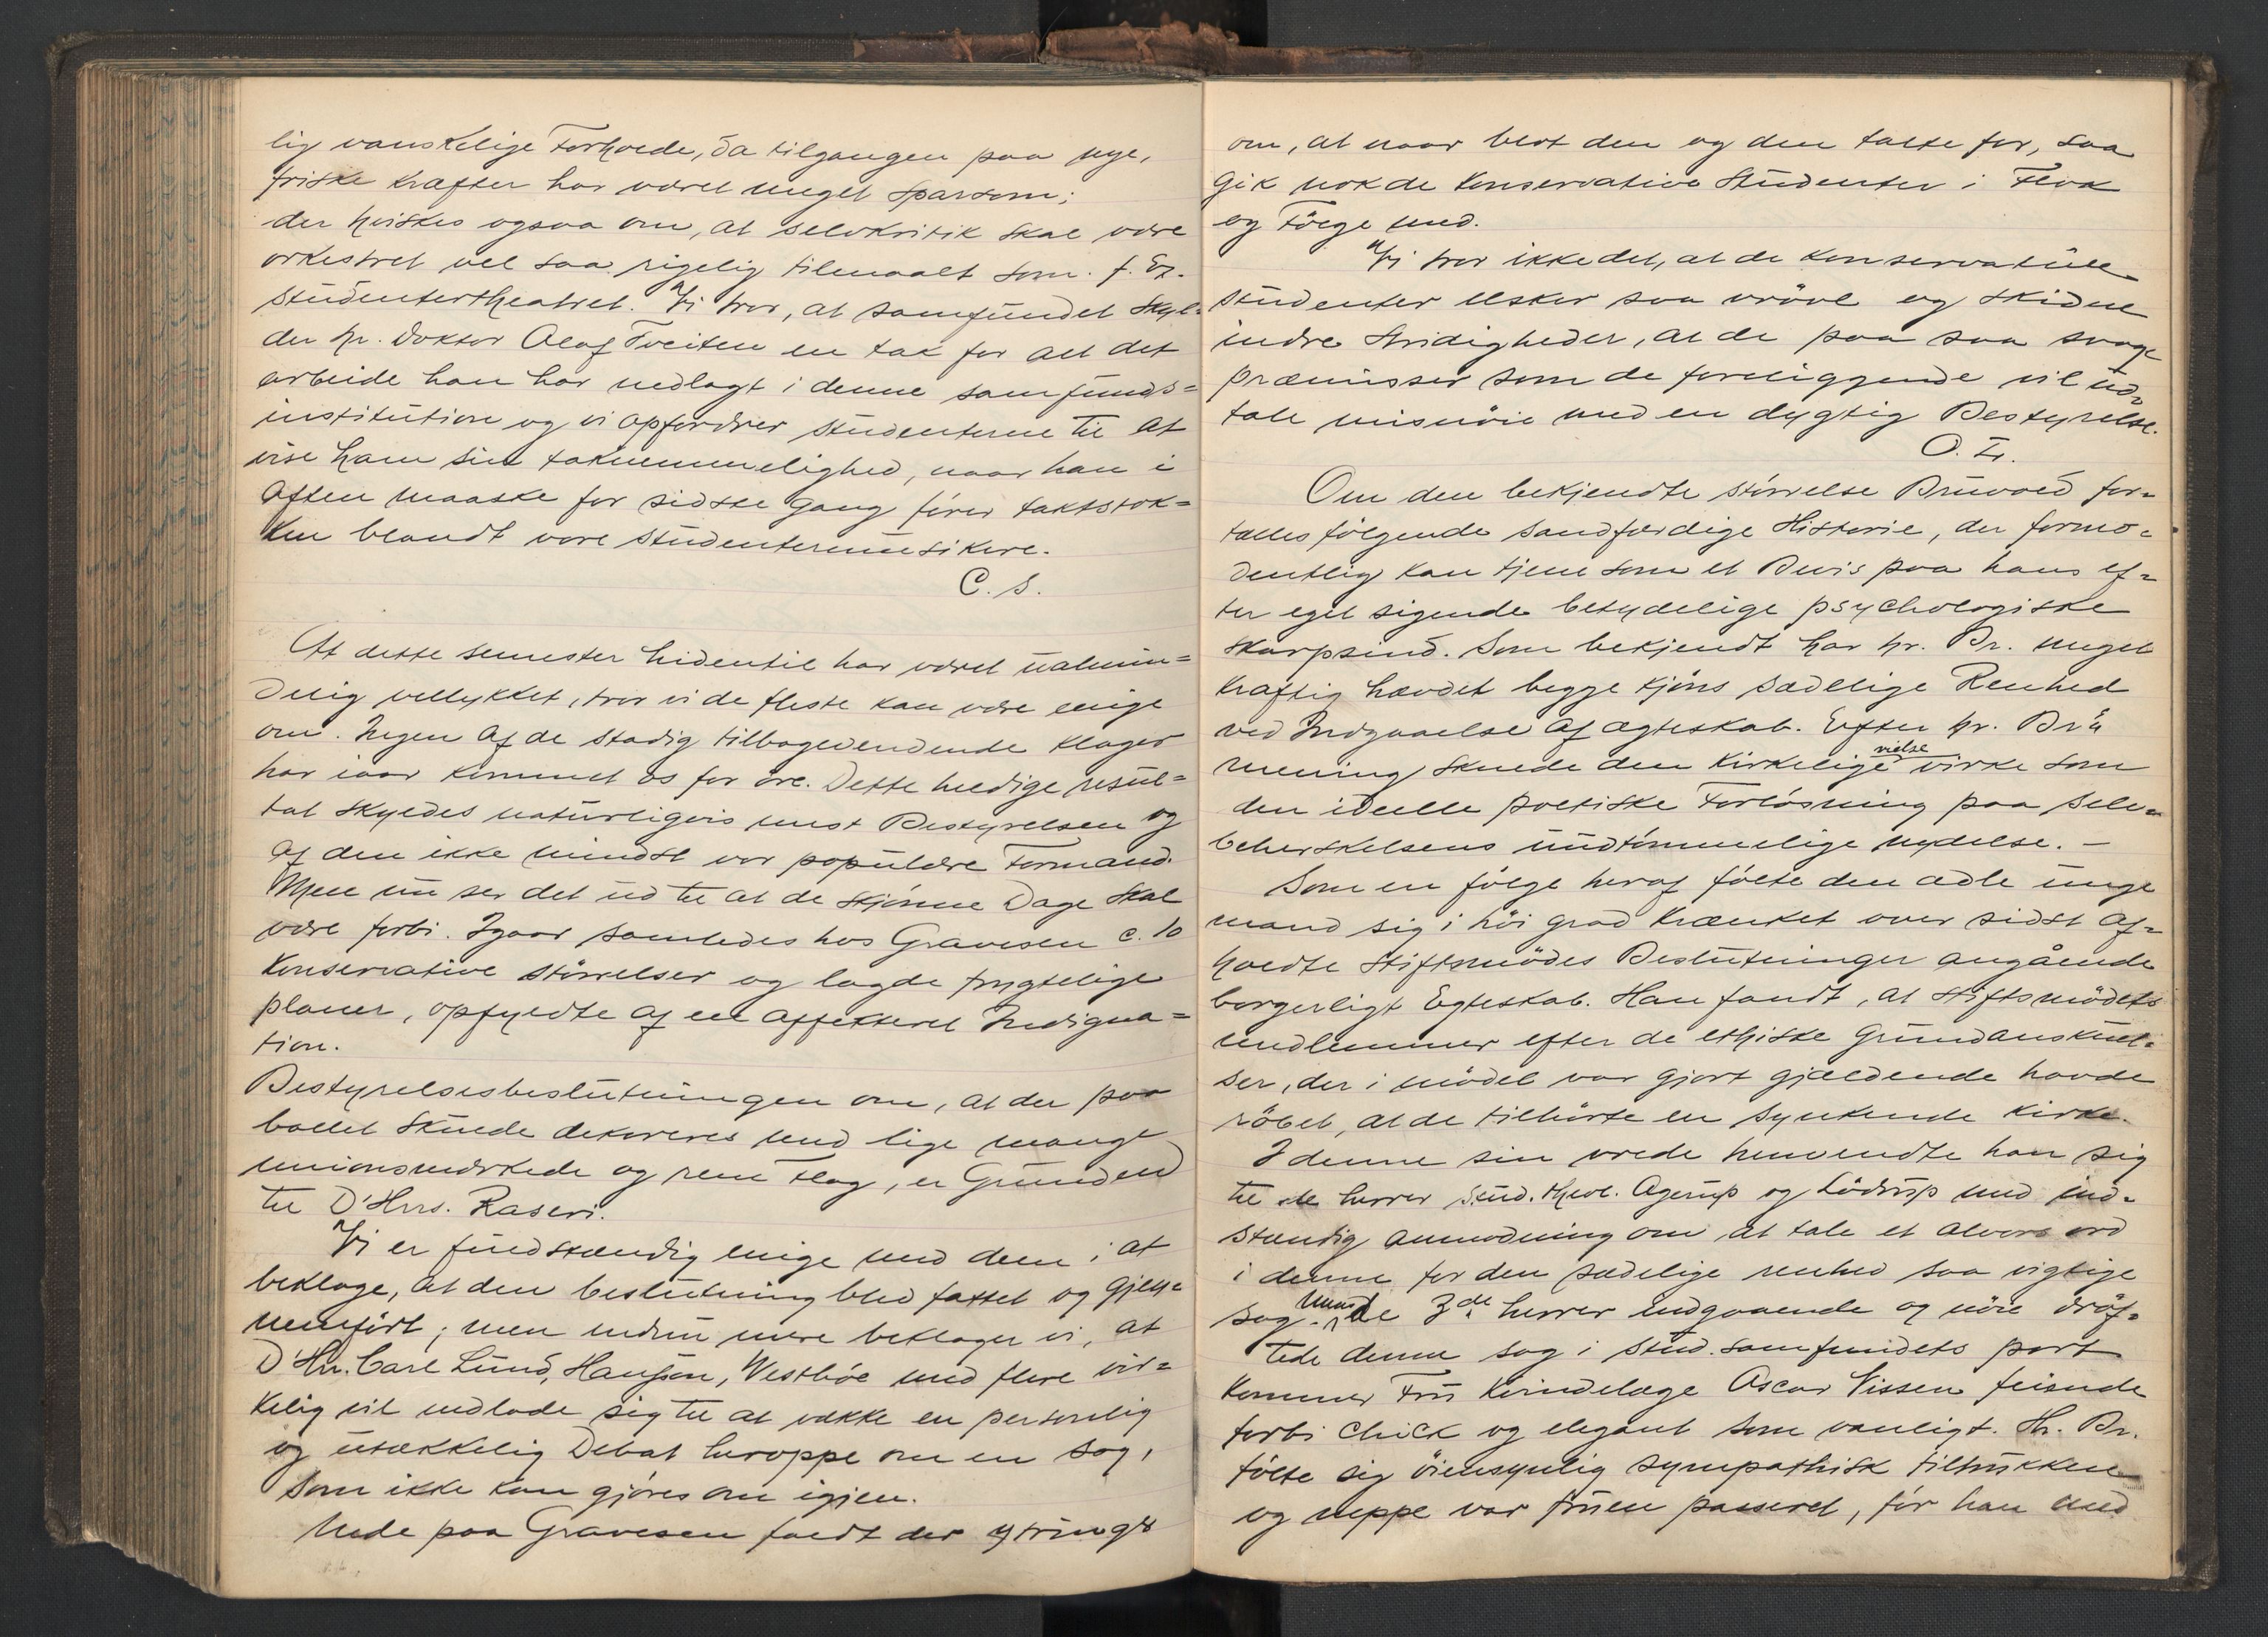 lig vanskelige Forholde, da tilgangen paa nye,
friske kræfter har været meget sparsom;
der hviskes ogsaa om, at selvkritik skal være
orkestret vel saa rigelig tilmaalt som f. Ex.
studentertheatret. Vi tror, at samfundet skyl-
der hr. Doktor Olaf Tveiten en tak for alt det
arbeide han har nedlagt i denne samfunds=
institution og vi opfordrer studenterne til at
vise ham sin taknemmelighed, naar han i
aften maaske for sidste gang fører taktstok=
ken blandt vore studentermusikere.
C. S.
At dette semester hidentil har været ualmin=
delig vellykket, tror vi de fleste kan være enige
om. Ingen af de stadig tilbagevendende klager
har iaar kommet os for øre. Dette heldige resul=
tat skyldes naturligvis mest Bestyrelsen og
af den ikke mindst vor populære Formand.
Men nu ser det ud til at de skjønne Dage skal
være forbi. Igaar samledes hos Gravesen c. 10
konservative størrelser og lagde frygtelige
planer, opfyldte af en affekteret Indigna=
tion.
Bestyrelsesbeslutningen om, at der paa
ballet skulde dekoreres med lige mange
unionsmærkede og rene Flag, er Grunden
til D'Hrrs. Raseri.
Vi er fuldstændig enige med dem i at
beklage, at den beslutning blev fattet og gjen=
nemført; men endnu mere beklager vi, at
D'Hrr. Carl Lund, Hansson, Vestbøe med flere vir=
kelig vil indlade sig til at vække en personlig
og utækkelig Debat heroppe om en sag,
som ikke kan gjøres om igjen.
Nede paa Gravesen faldt der ytringer
om, at naar blot den og den talte for, saa
gik nok de konservative Studenter i Flok
og Følge med.
Vi tror ikke det, at de konservative
studenter elsker saa vrøvl og skidne
indre Stridigheder, at de paa saa svage
præmisser som de foreliggende vil ud-
tale misnøie med en dygtig Bestyrelse.
O. L.
Om den bekjendte størrelse Bruvold for-
tælles følgende sandfærdige Historie, der formo-
dentlig kan tjene som et Bevis paa hans ef-
ter eget sigende betydelige psychologiske
skarpsind. Som bekjendt har hr. Br. meget
kraftig hævdet begge kjøns sædelige Renhed
ved Indgaaelse af ægteskab. Efter hr. Br's
mening skulde den kirkelige vielse virke som
den ideelle poetiske Forløsning paa selv-
beherskelsens uudtømmelige nydelse. –
Som en følge heraf følte den ædle unge
mand sig i høi grad krænket over sidst af-
holdte Stiftsmødes Beslutninger angående
borgerligt Egteskab. Han fandt, at stiftsmødets
medlemmer efter de ethiske Grundanskuel-
ser, der i mødet var gjort gjældende havde
røbet, at de tilhørte en synkende kirke.
I denne sin vrede henvendte han sig
til de herrer stud. theol. Agerup og Lødrup med ind-
stændig anmodning om at tale et alvors ord
i denne for den sædelige renhed saa vigtige
sag. Mens de 3de herrer indgaaende og nøie drøf-
tede denne sag i stud. samfundets port
kommer Fru Kvindelæge Oscar Nissen feiende
forbi chick og elegant som vanligt. Hr. Br.
følte sig øiensynlig sympathisk tiltrukken
og neppe var fruen passeret, før han med